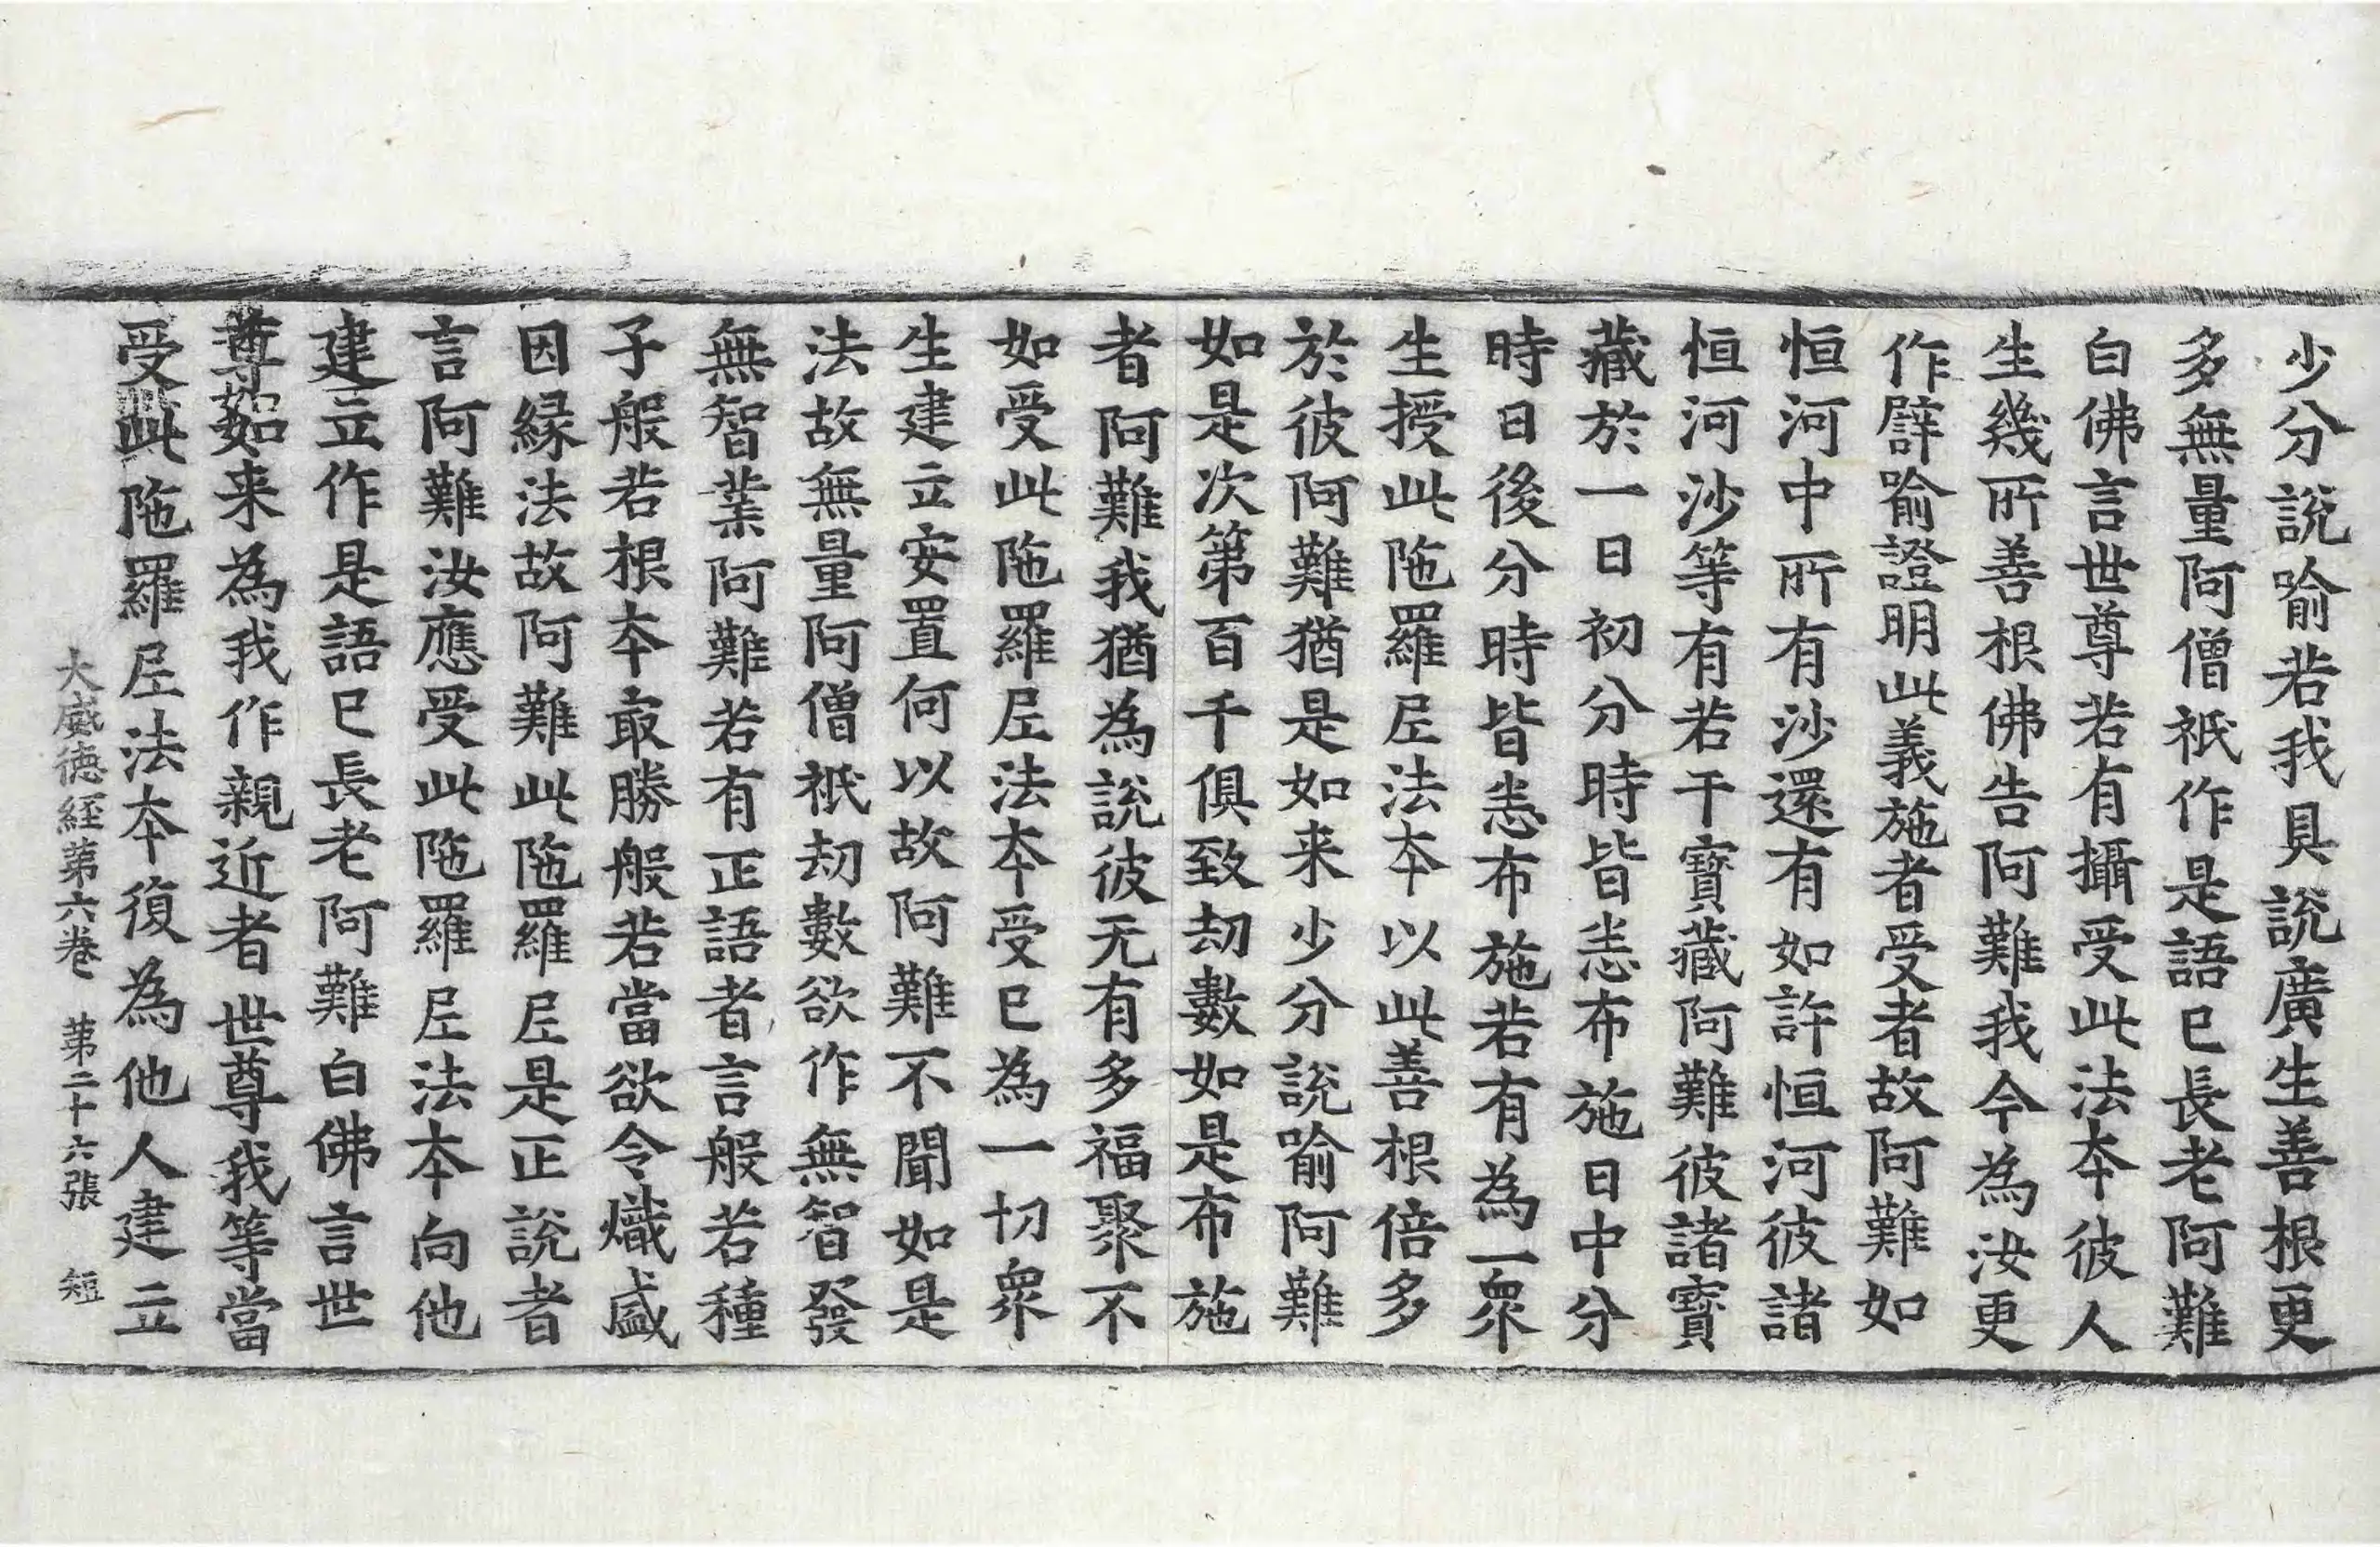 少分說喻若我具說廣生善根更
多無量阿僧祇作是語已長老阿難
白佛言世尊若有攝受此法夲彼人
生幾所善根佛告阿難我今為汝更
作譬喻證明此義施者受者故阿難如
恒河中所有沙還有如許恒河彼諸
恒河沙等有若干寶藏阿難彼諸寶
藏於一日初分時皆悉布施日中分
時日後分時皆悉布施若有為一衆
生授此陁羅尼法夲以此善根倍多
於彼阿難猶是如来少分說喻阿難
如是次第百千俱致劫數如是布施
者阿難我猶為說彼无有多福聚不
如受此陁羅尼法夲受已為一切衆
生建立安置何以故阿難不聞如是
法故無量阿僧祇劫數欲作無智發
無智業阿難若有正語者言般若種
子般若根夲㝡勝般若當欲令熾盛
因緣法故阿難此陁羅尼是正說者
言阿難汝應受此陁羅尼法夲向他
建立作是語已長老阿難白佛言世
尊如来為我作親近者世尊我等當
受此陁羅尼法夲復為他人建立
大威德經第六卷　第二十六張　短